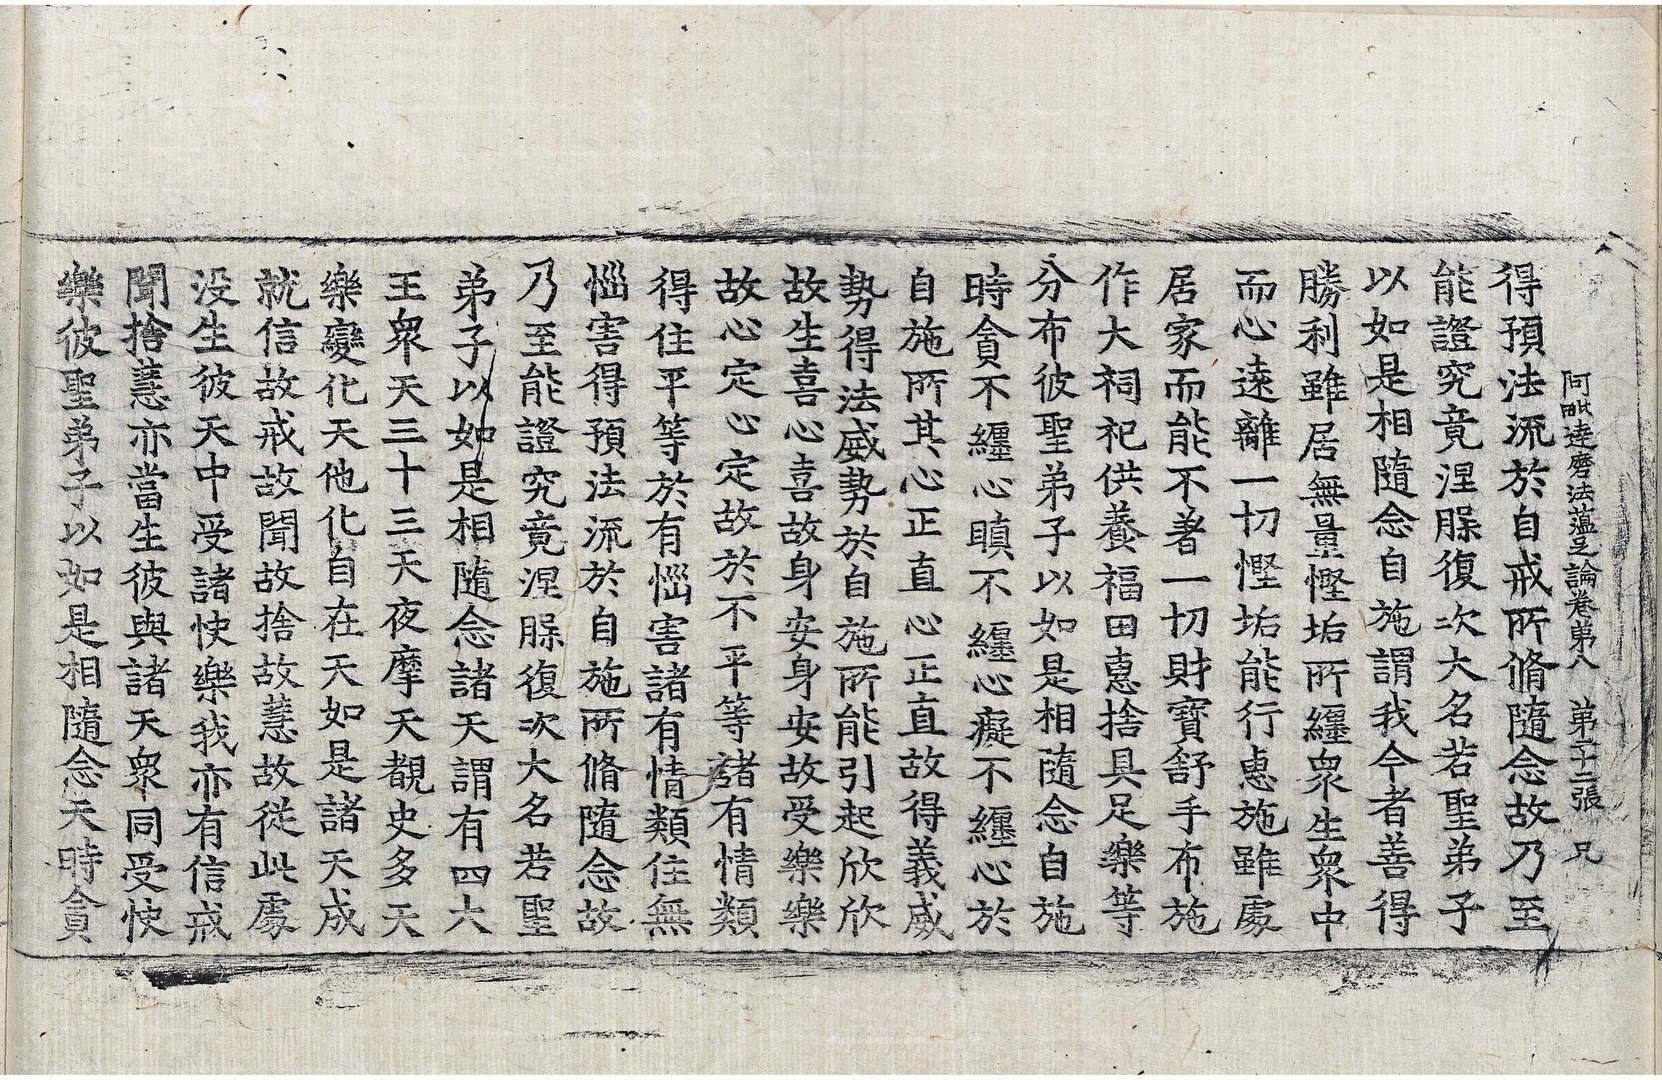 阿毗達磨法蘊足論卷第八　第十二張　兄
得預法流於自戒所脩隨念故乃至
能證究竟涅槃復次大名若聖弟子
以如是相隨念自施謂我今者善得
勝利雖居無量慳垢所纏衆生衆中
而心遠離一切慳垢能行惠施雖處
居家而能不著一切財寶舒手布施
作大祠祀供養福田惠捨具足樂等
分布彼聖弟子以如是相隨念自施
時貪不纏心瞋不纏心癡不纏心於
自施所其心正直心正直故得義威
勢得法威勢於自施所能引起欣欣
故生喜心喜故身安身安故受樂樂
故心定心定故於不平等諸有情類
得住平等於有惱害諸有情類住無
惱害得預法流於自施所脩隨念故
乃至能證究竟涅槃復次大名若聖
弟子以如是相隨念諸天謂有四大
王衆天三十三天夜摩天覩史多天
樂變化天他化自在天如是諸天成
就信故戒故聞故捨故慧故從此處
没生彼天中受諸快樂我亦有信戒
聞捨慧亦當生彼與諸天衆同受快
樂彼聖弟子以如是相隨念天時貪